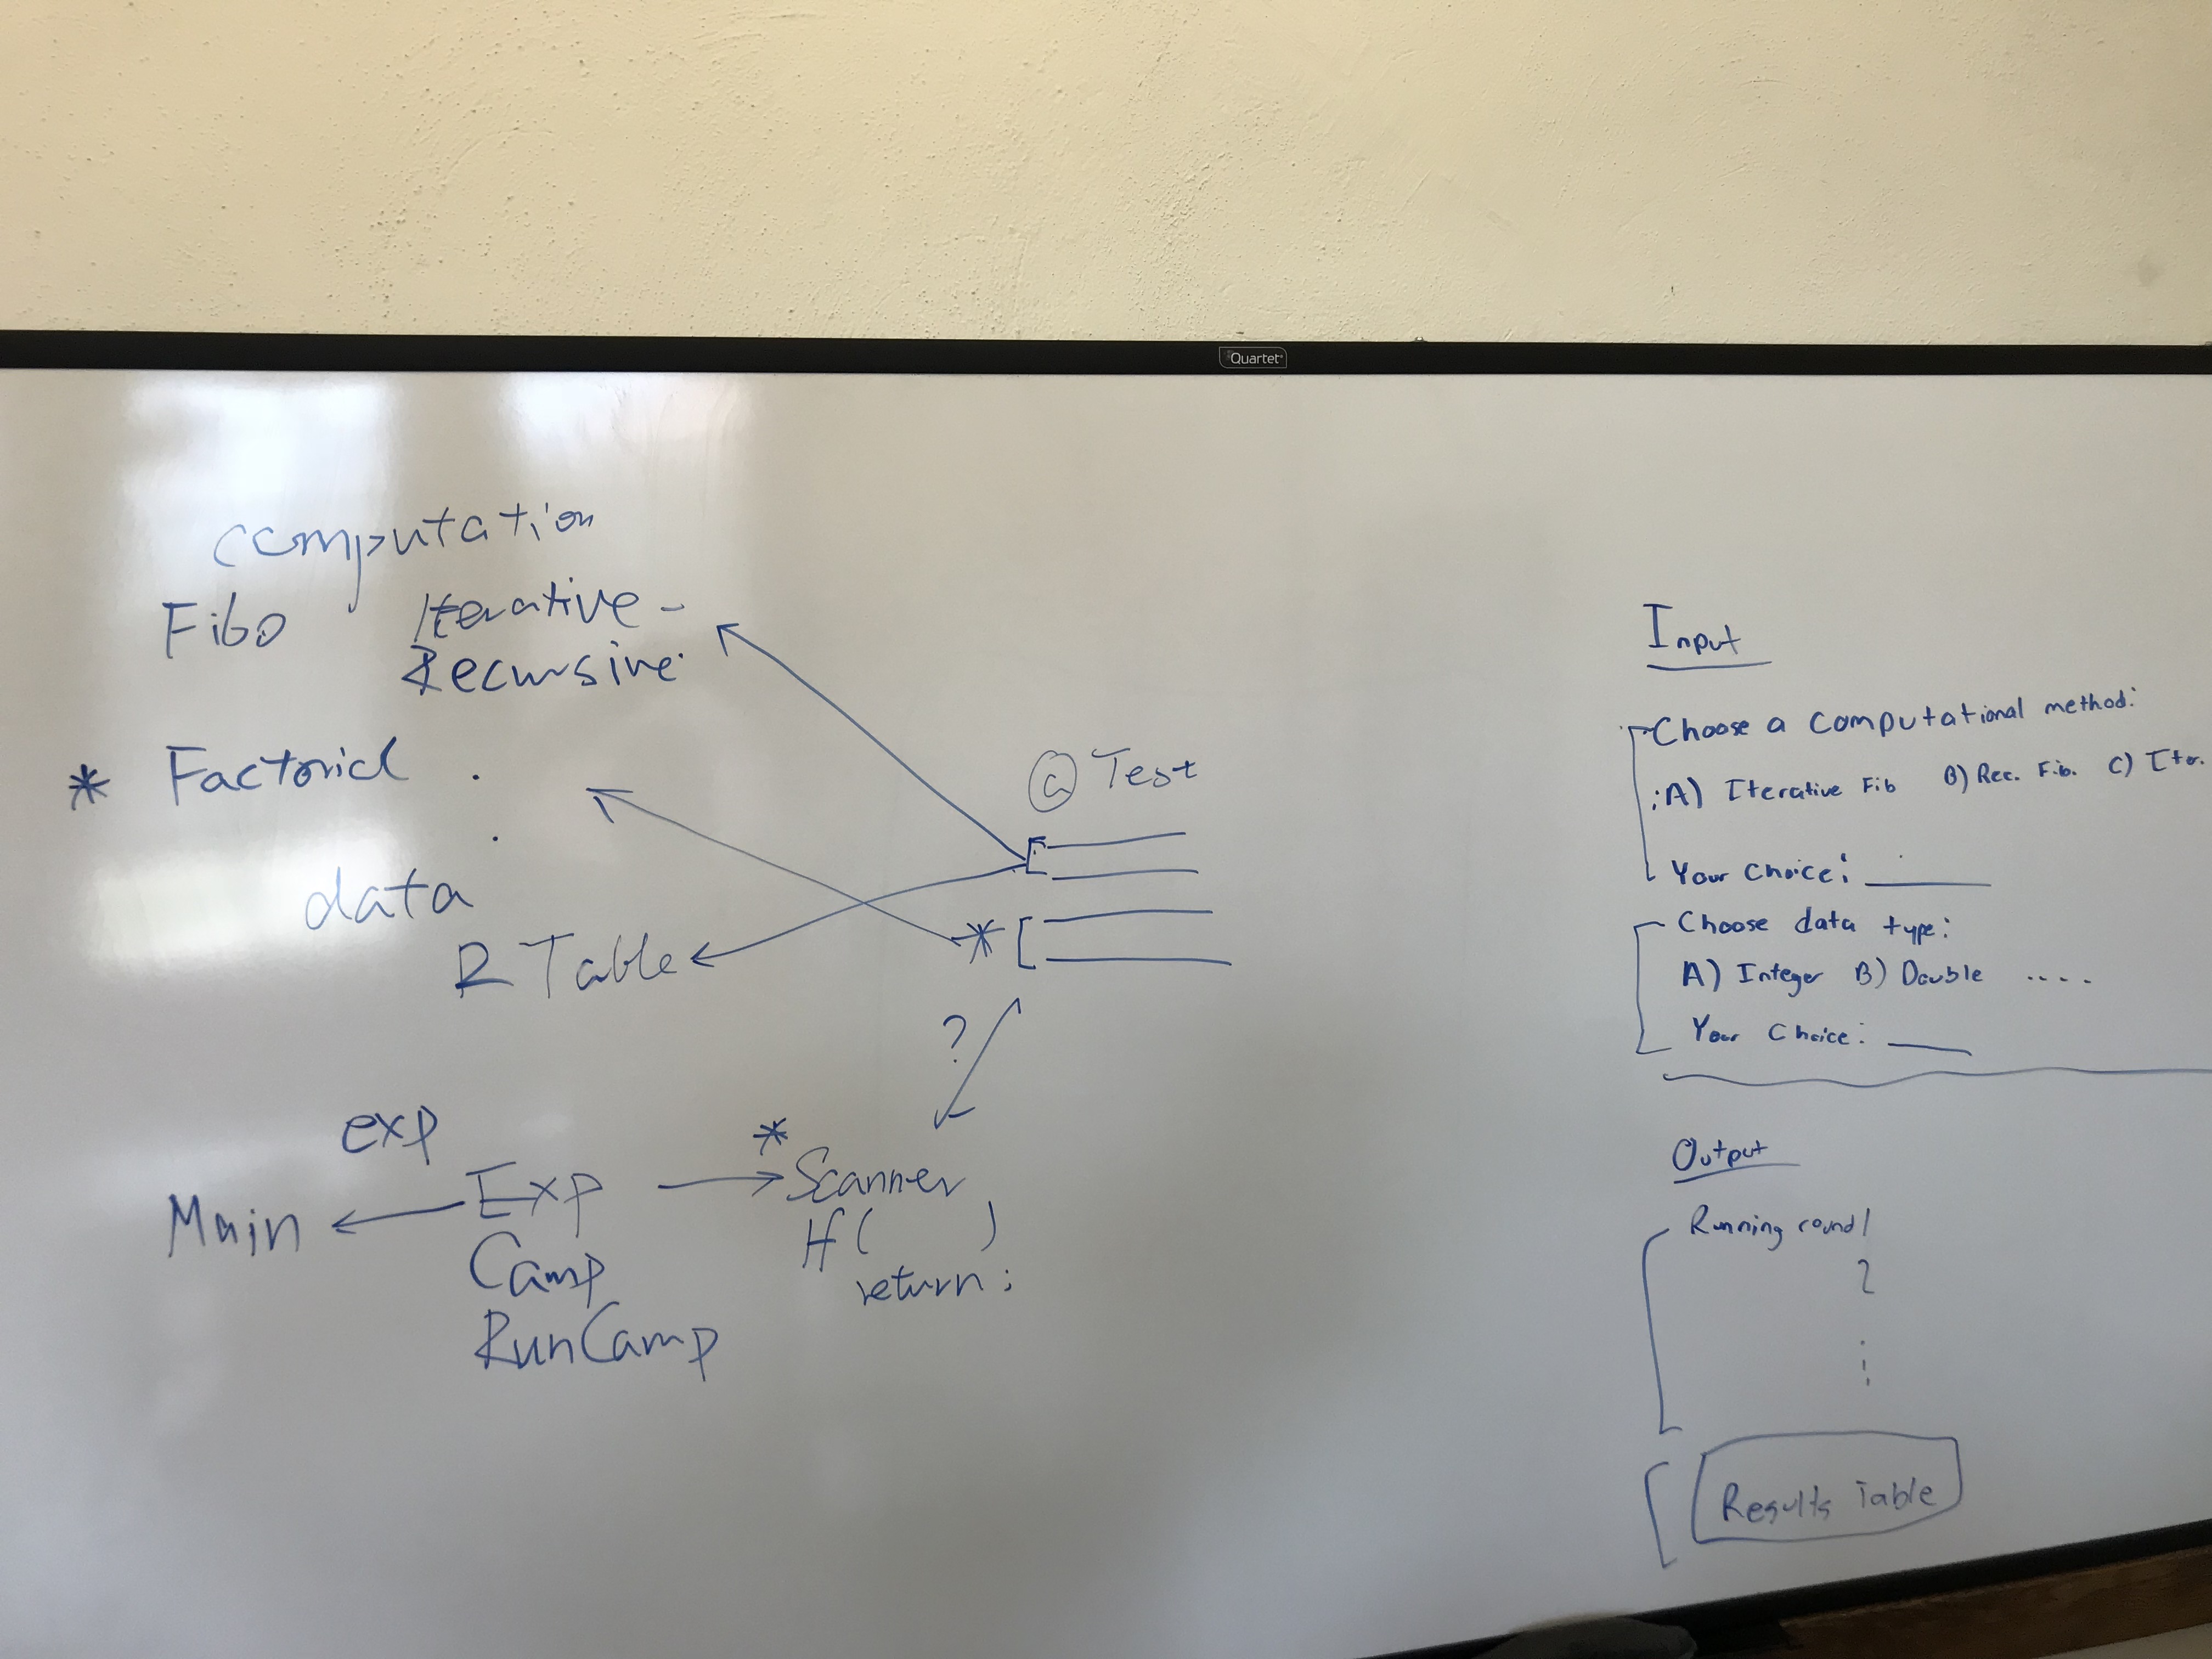 Quartet
computation
Fibo Iterative -
Recursive.
* Factorial .
.
data
R Table
@ Test
*
?
exp
Main Exp * Scanner
Comp If( )
RunComp return ;
Input
Choose a computational method:
A) Iterative Fib B) Rec. Fib. C) Iter.
Your choice: ____
Choose data type:
A) Integer B) Double ....
Your Choice: ____
Output
Running round 1
2
⋮
Results Table